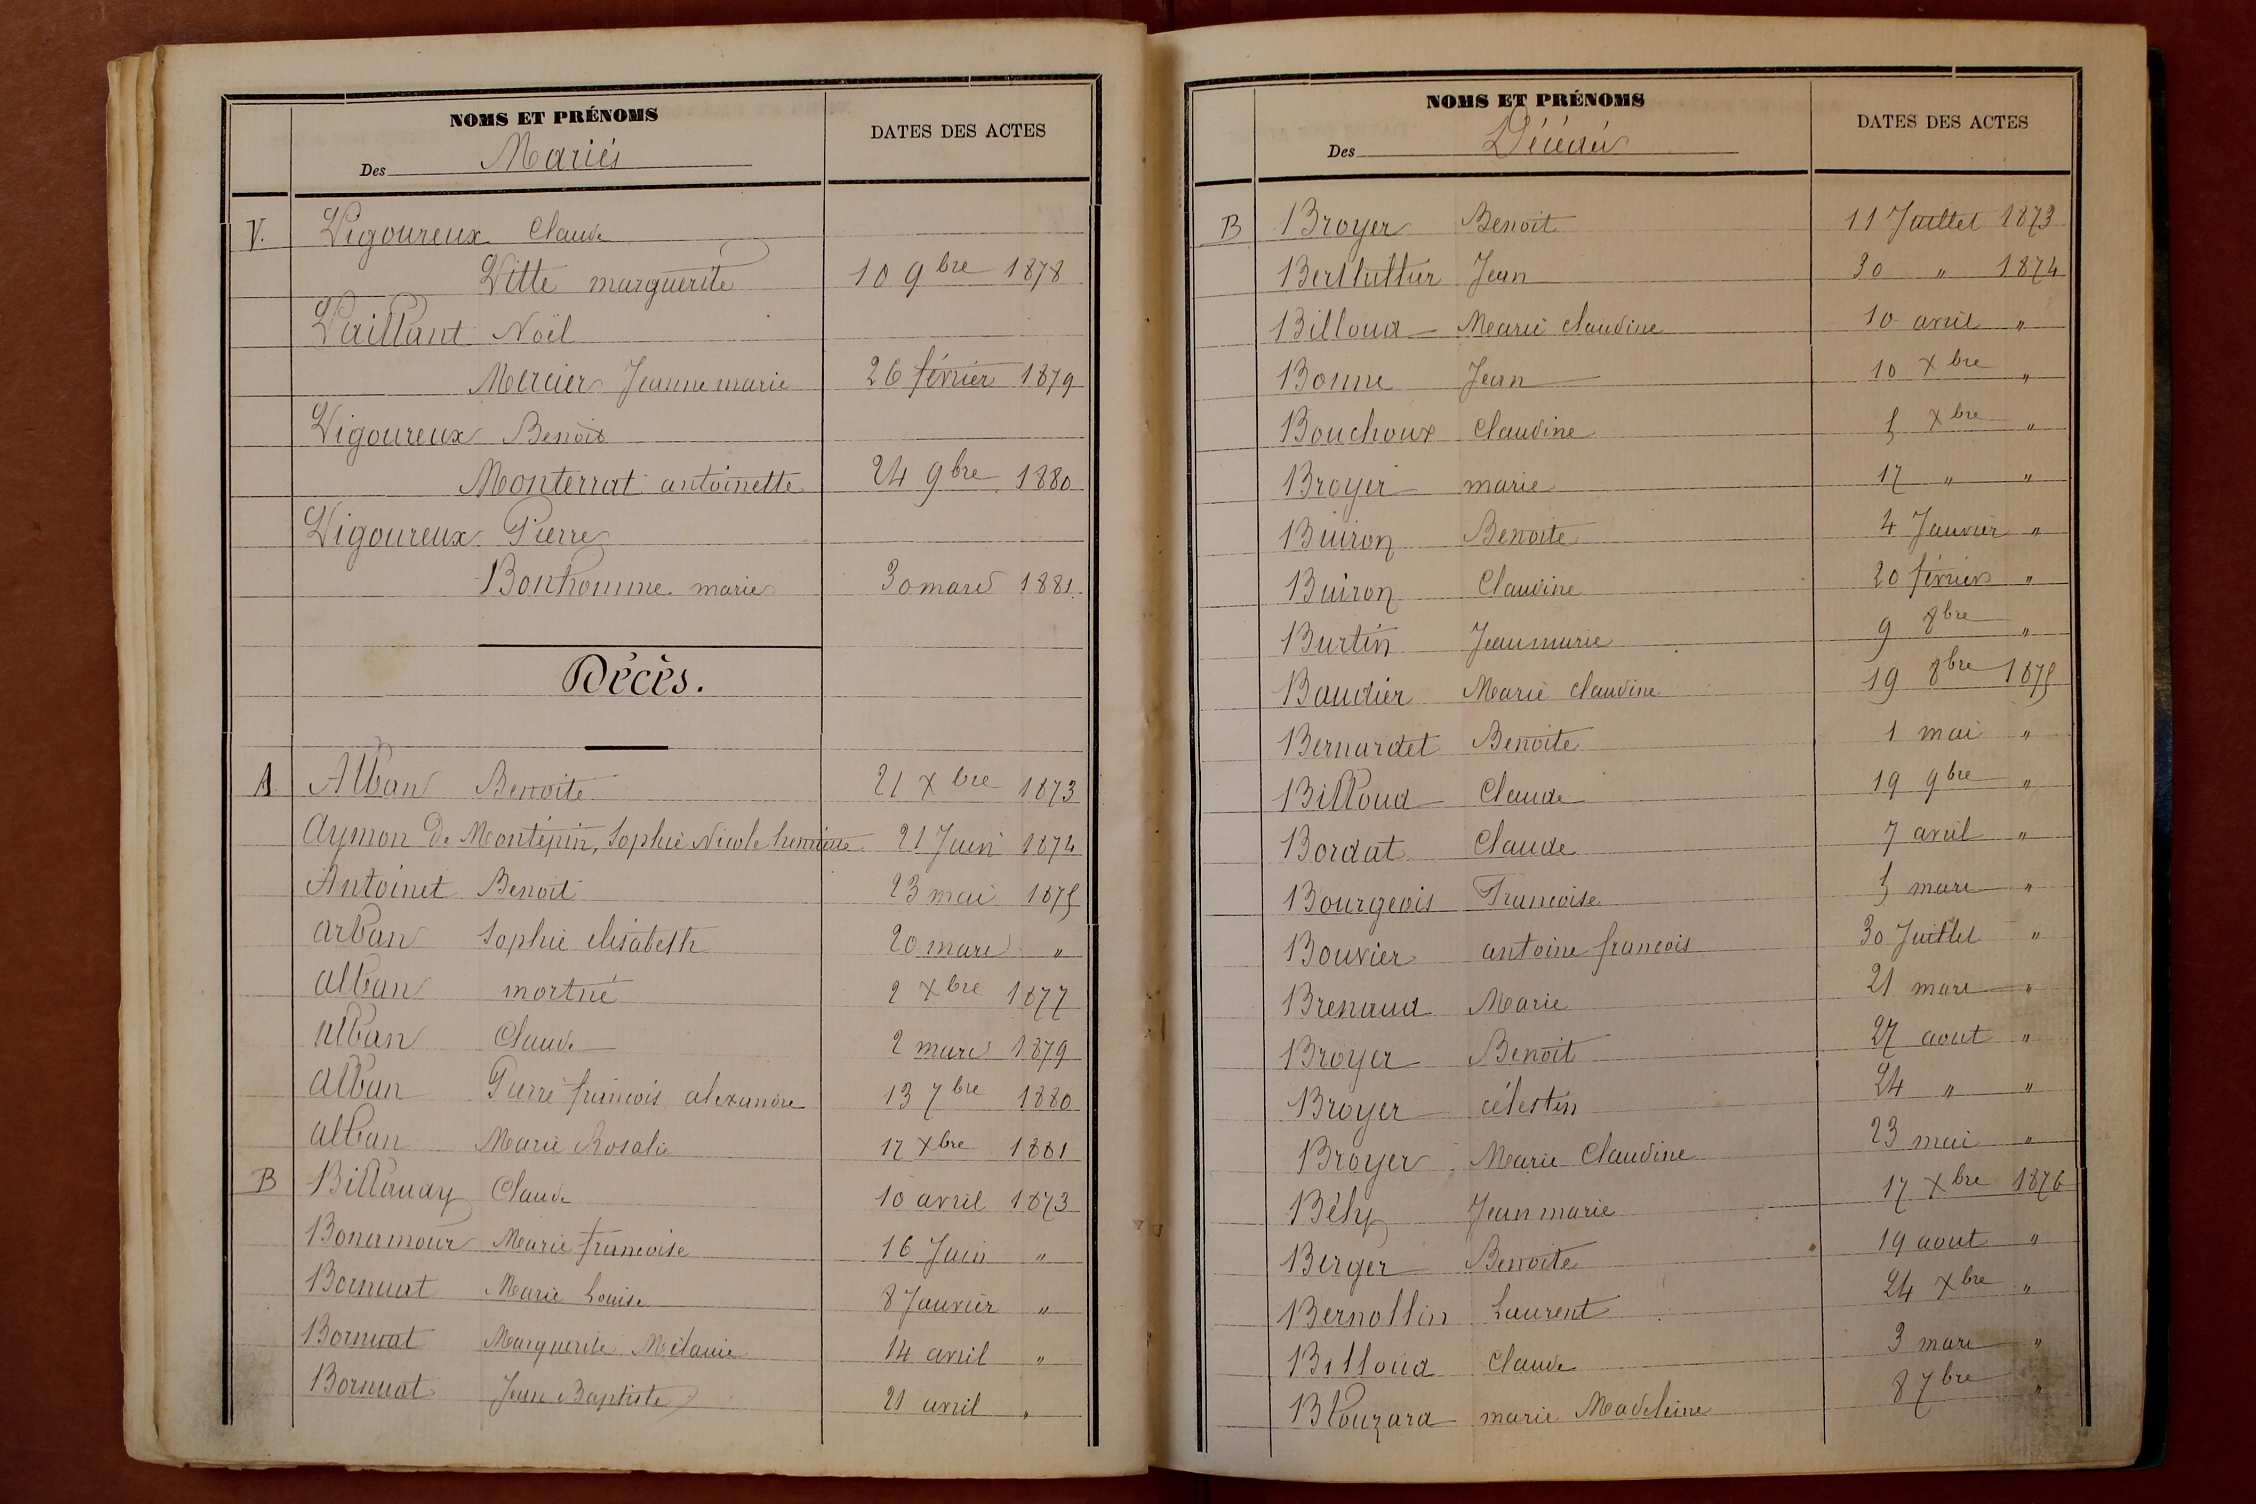 NOMS ET PRÉNOMS
Des Mariés
DATES DES ACTES
V. Vigoureux Claude
Vitte marguerite 10 9bre 1878
Vaillant Noël
Mercier Jeanne marie 26 février 1879
Vigoureux Benoit
Monterrat antoinette 24 9bre 1880
Vigoureux Pierre
Bonhomme marie 30 mars 1881.
Décès.
A Alban Benoite 21 xbre 1873
Aymon De Montépin, Sophie Nicole 21 Juin 1874
Antoinet Benoit 23 mai 1875
arban Sophie elisabeth 20 mars "
alban mortné 2 xbre 1877
alban Claude 2 mars 1879
alban Pierre françois alexandre 13 7bre 1880
alban Marie Rosalie 17 xbre 1881
B Billouay Claude 10 avril 1873
Bonamour Marie françoise 16 Juin "
Bornuat Marie Louise 8 Janvier "
Bornuat Marguerite Mélanie 14 avril "
Bornuat Jean Baptiste 21 avril "
NOMS ET PRÉNOMS
Des Décédés
DATES DES ACTES
B Broyer Benoit 11 Juillet 1873
Jean 30 " 1874
Billoud Marie claudine 10 avril "
Bonne Jean 10 xbre "
Bouchoux Claudine 5 xbre "
Broyer marie 17 " "
Buiron Benoite 4 Janvier "
Buiron Claudine 20 février "
Burtin Jeanmarie 9 8bre "
Baudier Marie claudine 19 8bre 1875
Bernardet Benoite 1 mai "
Billoud Claude 19 9bre "
Bordat Claude 7 avril "
Bourgeois Francoise 5 mars "
Bouvier antoine francois 30 Juillet "
Brenaud Marie 21 mars "
Broyer Benoit 27 aout "
Broyer célestin 24 " "
Broyer Marie Claudine 23 mai "
Bély Jean marie 17 xbre 1876
Berger Benoite 19 aout "
Bernollin Laurent 24 xbre "
Billoud Claude 3 mars "
Blouzard marie Madeleine 8 7bre "